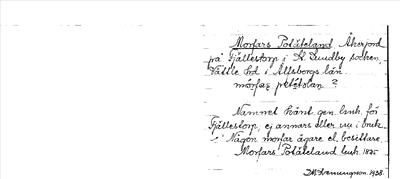 Morfars Potäteland Åkerjord
på Fjällestorp i St. Lundby socken,
Vättle hd i Älfsborgs län.
mòrfaṣ
Namnet känt gen. bruk. för
Fjällestorp, ej annars eller nu i bruk.
Någon morfar ägare el. besittare.
Morfars Potäteland bruk. 1825
1928.